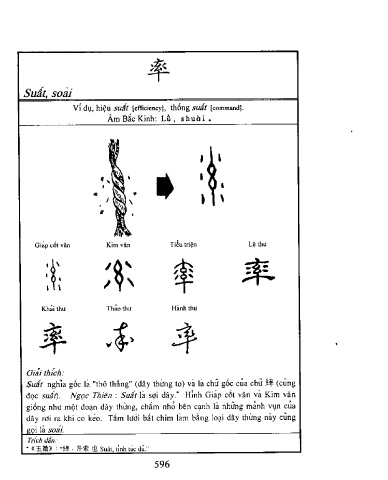 率
Suất, soái
Ví dụ, hiệu suất [efficiency], thống suất [command].
Âm Bắc Kinh: Lǜ, shuài.
Giáp cốt văn Kim văn Tiểu triện Lệ thư
Khải thư Thảo thư Hành thư
率 率
Giải thích:
Suất nghĩa gốc là "thô thằng" (dây thừng to) và là chữ gốc của chữ 繂 (cũng
đọc suất). Ngọc Thiên : Suất là sợi dây." Hình Giáp cốt văn và Kim văn
giống như một đoạn dây thừng, chấm nhỏ bên cạnh là những mảnh vụn của
dây rơi ra khi co kéo. Tấm lưới bắt chim làm bằng loại dây thừng này cũng
gọi là soái.
Trích dẫn:
596